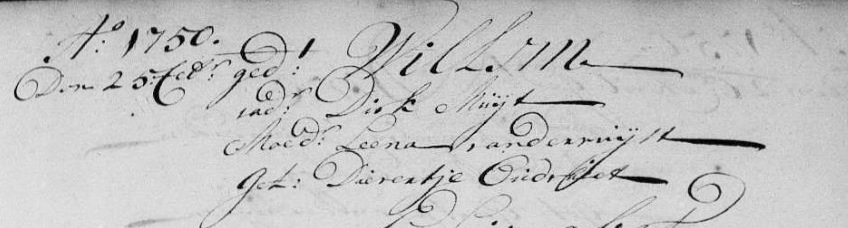 Aº: 1750.
Den 25: Febr: ged: 1 Willem
vadr: Dirk Muijt
Moedr: Leena vanderruijst
get: Dierentje Oudvliet